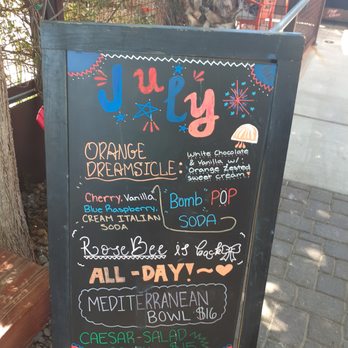 July
ORANGE
DREAMSICLE:
White Chocolate
& Vanilla w/
Orange Zested
sweet cream!
Cherry, Vanilla,
Blue Raspberry,
CREAM ITALIAN
SODA
"Bomb" POP
SODA
RoseBee is back
ALL-DAY!~
MEDITERRANEAN
BOWL $16
CAESAR-SALAD